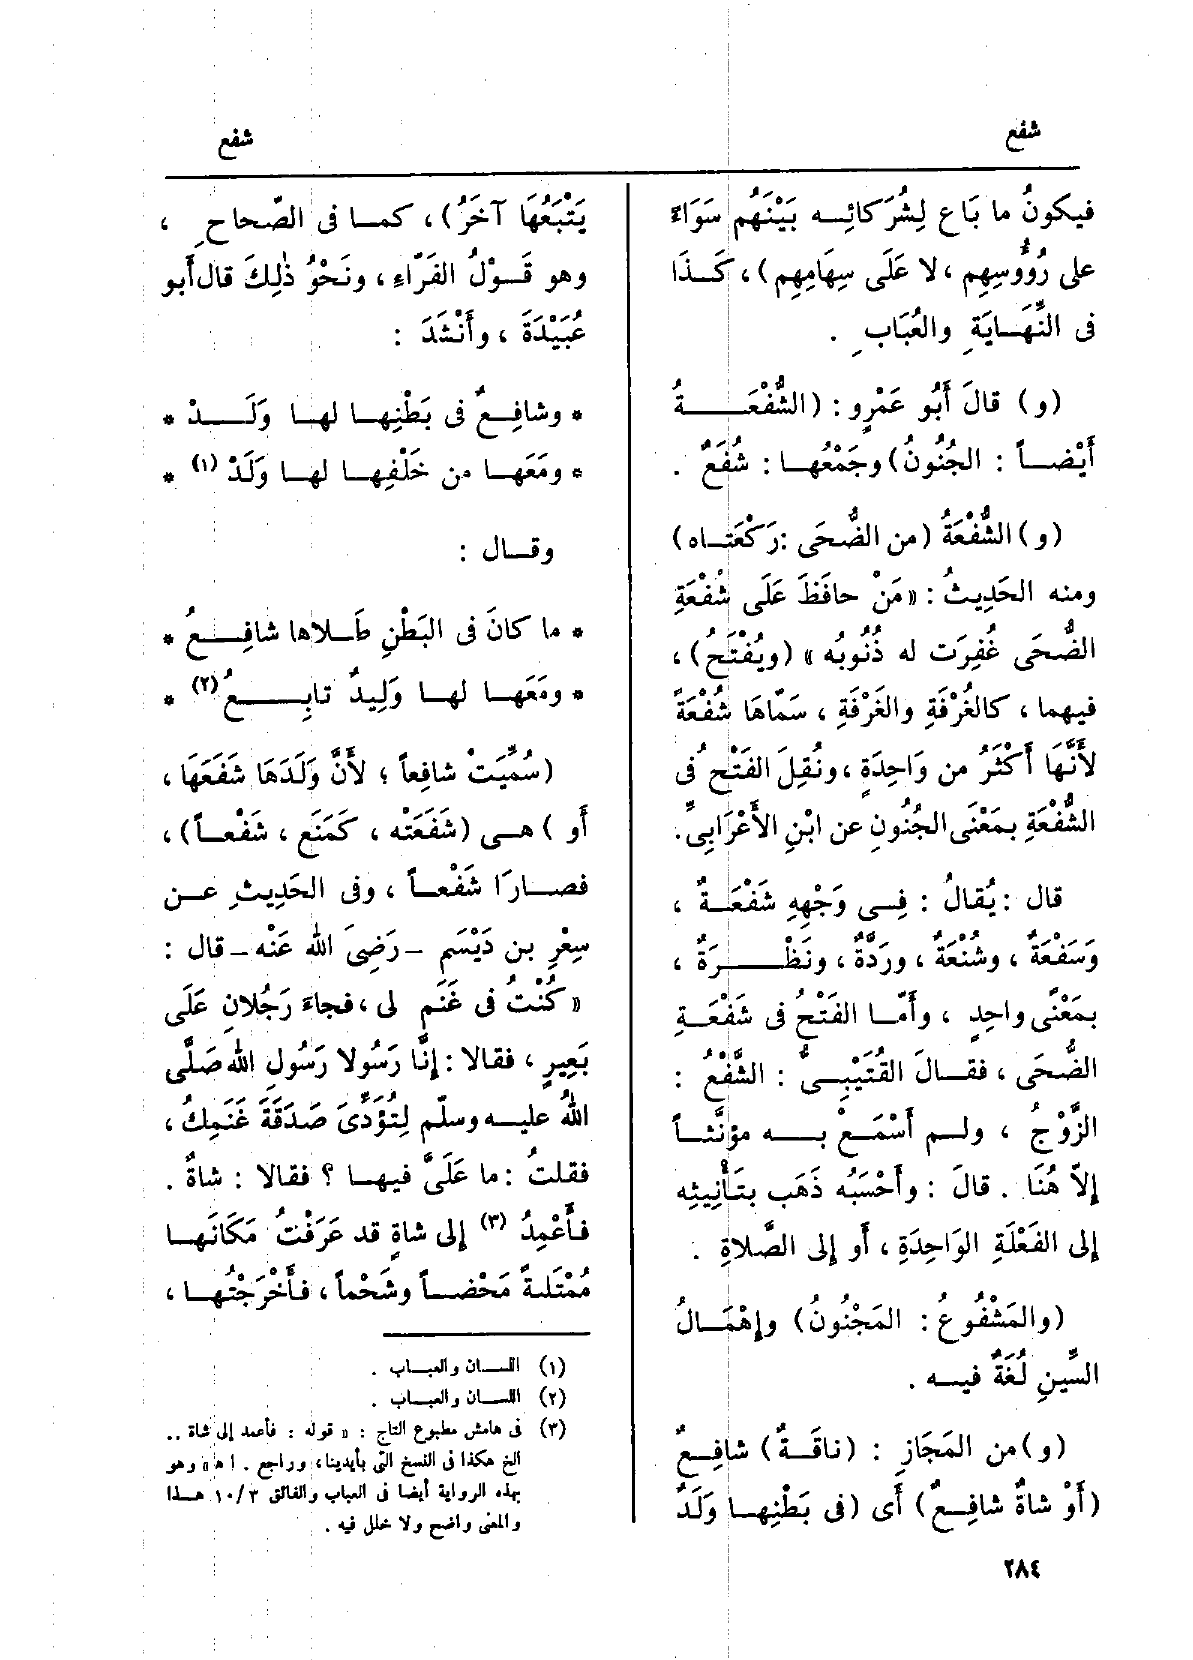 شفع
شفع
فيكونُ ما بَاع لِشُرَكائِــه بَيْنَهُم سَوَاءً
على رُؤُوسِهِم ، لا عَلَى سِهَامِهِم) ، كَــذَا
فى النِّهَــايَةِ والعُبَابِ .
(و) قالَ أَبُو عَمْرٍو : (الشُّفْعَــــةُ
أَيْضــاً : الجُنُونُ) وجَمْعُهــا : شُفَعٌ .
(و) الشُّفْعَةُ (من الضُّحَى : رَكْعَتــاه)
ومنه الحَدِيثُ : « مَنْ حافَظَ عَلَى شُفْعَةِ
الضُّحَى غُفِرَت له ذُنُوبُه » (ويُفْتَحُ) ،
فيهما ، كالغُرْفَةِ والغَرْفَةِ ، سَمّاهَا شُفْعَةً
لأَنَّهَا أَكْثَرُ من وَاحِدَةٍ ، ونُقِلَ الفَتْحُ فى
الشُّفْعَةِ بمَعْنَى الجُنُونِ عن ابْنِ الأَعْرَابِىِّ .
قال : يُقالُ : فِــى وَجْهِهِ شَفْعَــةٌ ،
وَسَفْعَةٌ ، وشُنْعَةٌ ، ورَدَّةٌ ، ونَظْــــرَةٌ ،
بمَعْنًى واحِدٍ ، وأَمّــا الفَتْحُ فى شَفْعَــةِ
الضُّحَى ، فقــالَ القُتَيْبِــىُّ : الشَّفْعُ :
الزَّوْجُ ، ولــم أَسْمَــعْ بــه مؤنَّثــاً
إلاّ هُنَا . قالَ : وأَحْسَبُه ذَهَب بتَأْنِيثِه
إلى الفَعْلَةِ الوَاحِدَةِ ، أَو إلى الصَّلاةِ .
(والمَشْفُوعُ : المَجْنُونُ) وإِهْمَــالُ
السِّينِ لُغَةٌ فيــه .
(و) من المَجَازِ : (ناقَــةٌ) شافِــعٌ
(أَوْ شاةٌ شافِــعٌ) أَى (فى بَطْنِهــا وَلَدٌ
يَتْبَعُهَا آخَرُ) ، كمــا فى الصّحاحِ ،
وهو قَــوْلُ الفَرّاءِ ، ونَحْوُ ذٰلِكَ قال أَبو
عُبَيْدَةَ ، وأَنْشَدَ :
* وشافِــعٌ فى بَطْنِهــا لهــا وَلَــــدْ *
* ومَعَهــا من خَلْفِهــا لهــا وَلَدْ (١) *
وقــال :
* ما كانَ فى البَطْنِ طَــلاها شافِــعُ *
* ومَعَهــا لهــا وَلِيدٌ تابِــــعُ (٢) *
(سُمِّيَتْ شافِعاً ؛ لأَنَّ وَلَدَهَا شَفَعَهَا ،
أَو ) هــى (شَفَعَتْه ، كَمَنَع ، شَفْعــاً) ،
فصــارَا شَفْعــاً ، وفى الحَدِيثِ عــن
سِعْرِ بن دَيْسَم – رَضِىَ الله عَنْه – قال :
« كُنْتُ فى غَنَمٍ لى ، فجاءَ رَجُلانِ عَلَى
بَعِيرٍ ، فقالا : إِنَّا رَسُولا رَسُولِ الله صَلَّى
اللهُ عليــه وسلّم لِتُؤَدِّىَ صَدَقَةَ غَنَمِكَ ،
فقلتُ : ما عَلَىَّ فيهــا ؟ فقالا : شاةٌ .
فأَعْمِدُ (٣) إلى شاةٍ قد عَرَفْتُ مَكَانَهــا
مُمْتَلِئةً مَحْضــاً وشَحْماً ، فأَخْرَجْتُهــا ،
(١) اللســان والعبــاب .
(٢) اللســان والعبــاب .
(٣) فى هامش مطبوع التاج : « قوله : فأعمد إلى شاة ..
الخ هكذا فى النسخ التى بأيدينا ، وراجع . اه » وهو
بهذه الرواية أيضا فى العباب والفائق ٣/ ١٠ هــذا
والمعنى واضح ولا خلل فيه .
٢٨٤